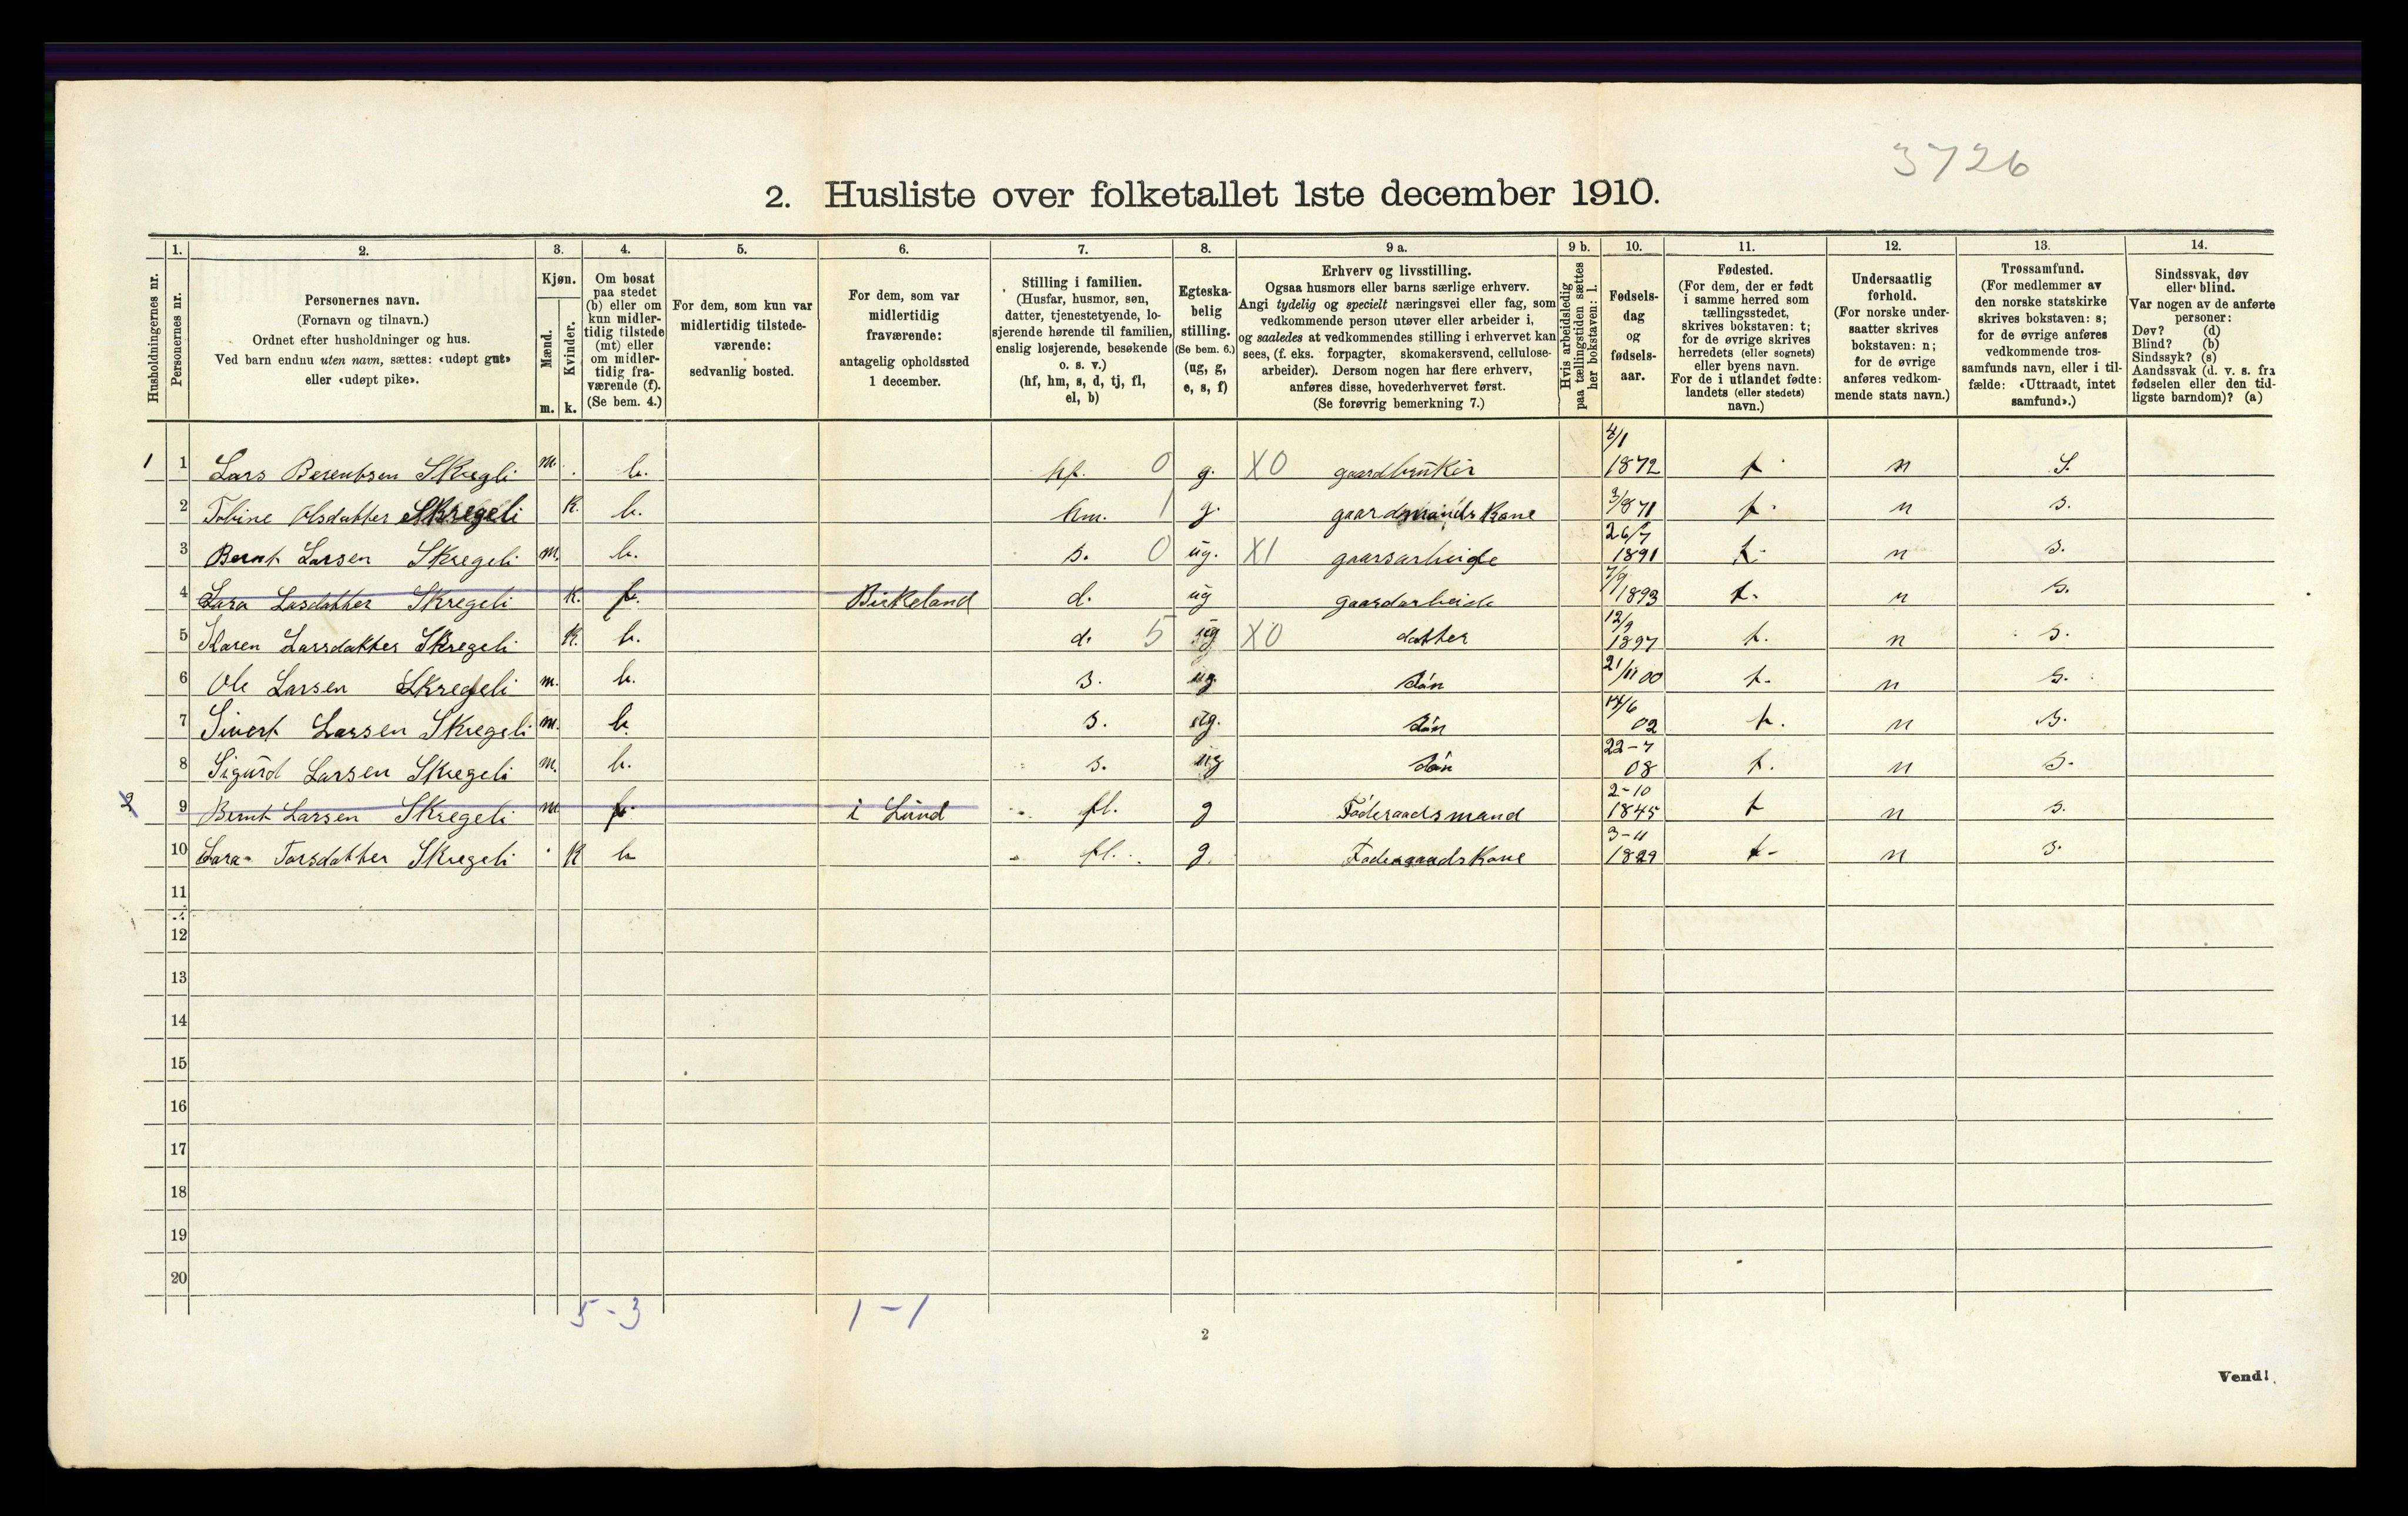 3726
2. Husliste over folketallet 1ste december 1910.
Husholdningernes nr.
1.
Personernes nr.
2.
Personernes navn.
(Fornavn og tilnavn.)
Ordnet efter husholdninger og hus.
Ved barn endnu uten navn, sættes: «udøpt gut»
eller «udøpt pike».
3.
Kjøn.
Mænd.
Kvinder.
m. k.
4.
Om bosat
paa stedet
(b) eller om
kun midler-
tidig tilstede
(mt) eller
om midler-
tidig fra-
værende (f).
(Se bem. 4.)
5.
For dem, som kun var
midlertidig tilstede-
værende:
sedvanlig bosted.
6.
For dem, som var
midlertidig
fraværende:
antagelig opholdssted
1 december.
7.
Stilling i familien.
(Husfar, husmor, søn,
datter, tjenestetyende, lo-
sjerende hørende til familien,
enslig losjerende, besøkende
o. s. v.)
(hf, hm, s, d, tj, fl,
el, b)
8.
Egteska-
belig
stilling.
(Se bem. 6.)
(ug, g,
e, s, f)
9 a.
Erhverv og livsstilling.
Ogsaa husmors eller barns særlige erhverv.
Angi tydelig og specielt næringsvei eller fag, som
vedkommende person utøver eller arbeider i,
og saaledes at vedkommendes stilling i erhvervet kan
sees, (f. eks. forpagter, skomakersvend, cellulose-
arbeider). Dersom nogen har flere erhverv,
anføres disse, hovederhvervet først.
(Se forøvrig bemerkning 7.)
9 b.
Hvis arbeidsledig
paa tællingstiden sættes
her bokstaven: l.
10.
Fødsels-
dag
og
fødsels-
aar.
11.
Fødested.
(For dem, der er født
i samme herred som
tællingsstedet,
skrives bokstaven: t;
for de øvrige skrives
herredets (eller sognets)
eller byens navn.
For de i utlandet fødte:
landets (eller stedets)
navn.)
12.
Undersaatlig
forhold.
(For norske under-
saatter skrives
bokstaven: n;
for de øvrige
anføres vedkom-
mende stats navn.)
13.
Trossamfund.
(For medlemmer av
den norske statskirke
skrives bokstaven: s;
for de øvrige anføres
vedkommende tros-
samfunds navn, eller i til-
fælde: «Uttraadt, intet
samfund».)
14.
Sindssvak, døv
eller blind.
Var nogen av de anførte
personer:
Døv? (d)
Blind? (b)
Sindssyk? (s)
Aandssvak (d. v. s. fra
fødselen eller den tid-
ligste barndom)? (a)
1 1 Lars Berentsen Skregli m. b. hf. 0 g. X0 gaardbruker 4/1 1872 t n S.
2 Tobine Olsdatter Skregeli K. b. hm. 1 g. gaardmands Kone 3/871 t. n s.
3 Bernt Larsen Skregeli m. b. s. 0 ug. X1 gaarsarbeide 26/7 1891 t. n s.
4 Lara Lasdatter Skregeli K. f. Birkeland d. ug gaardarbeide 7/9 1893 t. n s.
5 Karen Larsdatter Skregeli K. b. d. 5 ug X0 datter 12/9 1897 t. n s.
6 Ole Larsen Skregeli m. b. s. ug. sön 21/11 00 t. n s.
7 Sivert Larsen Skregeli m. b. s. ug. sön 14/6 02 t. n s.
8 Sigurd Larsen Skregeli m. b. s. ug sön 22-7 08 t. n s.
2 9 Bernt Larsen Skregeli m. f. i Lund fl. g Föderaadsmand 2-10 1845 t n s.
10 Lara Tarsdatter Skregeli K b fl. g. Föderaads Kone 3-11 1829 t- n s.
11
12
13
14
15
16
17
18
19
20
5-3 1-1
2
Vend!